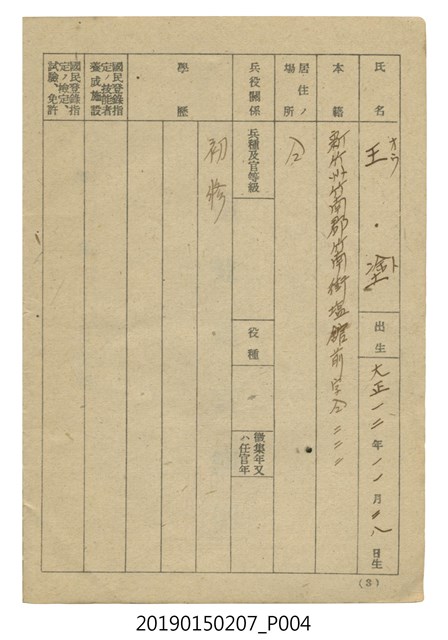 氏名 王塗 オウ ト 出生 大正一二年一一月二八日生
本籍 新竹州竹南郡竹南街塩館前字仝二二二
居住ノ場所 仝
兵役關係 兵種及官等級 役種 徵集年又ハ任官年
學歷 初修
國民登錄指定ノ技能者養成施設
國民登錄指定ノ檢定、試驗、免許
(3)
20190150207_P004